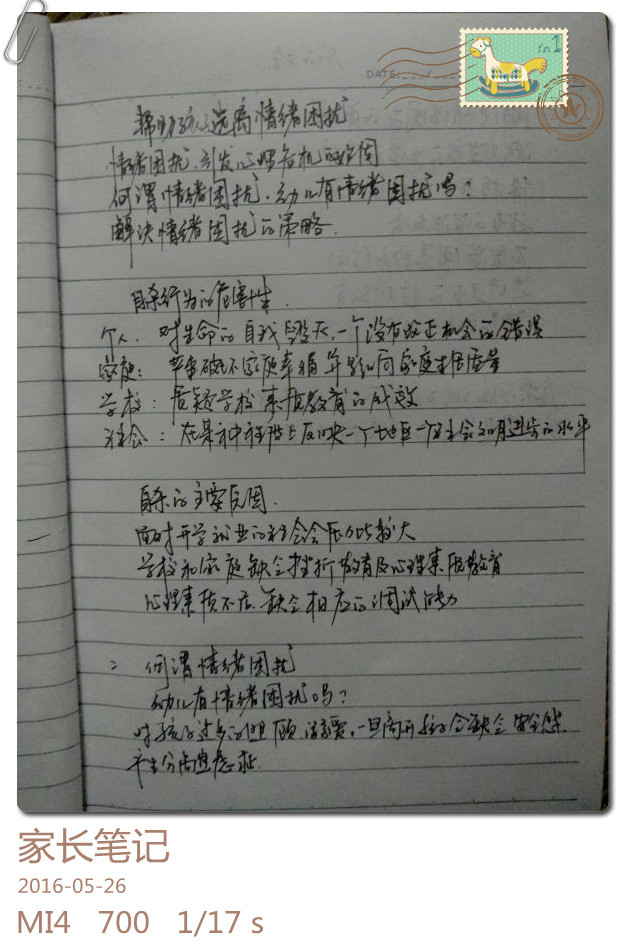 DATE:
帮助孩子远离情绪困扰
情绪困扰,引发心理危机的始因
何谓情绪困扰,幼儿有情绪困扰吗?
解决情绪困扰的策略.
自杀行为的危害性.
个人:对生命的自我毁灭,一个没有改正机会的错误
家庭:苹果破坏家庭幸福并影响家庭生活质量
学校:质疑学校素质教育的成效
社会:在某种程度上反映一个地区一个社会文明进步的水平
自杀的主要原因.
面对升学就业的社会压力比较大
学校和家庭缺乏挫折教育及心理素质教育
心理素质不太 缺乏相应的调试能力
二 何谓情绪困扰
幼儿有情绪困扰吗?
对孩子过多的照顾,溺爱,一旦离开孩子会缺乏安全感.
产生分离焦虑症.
家长笔记
2016-05-26
MI4 700 1/17 s